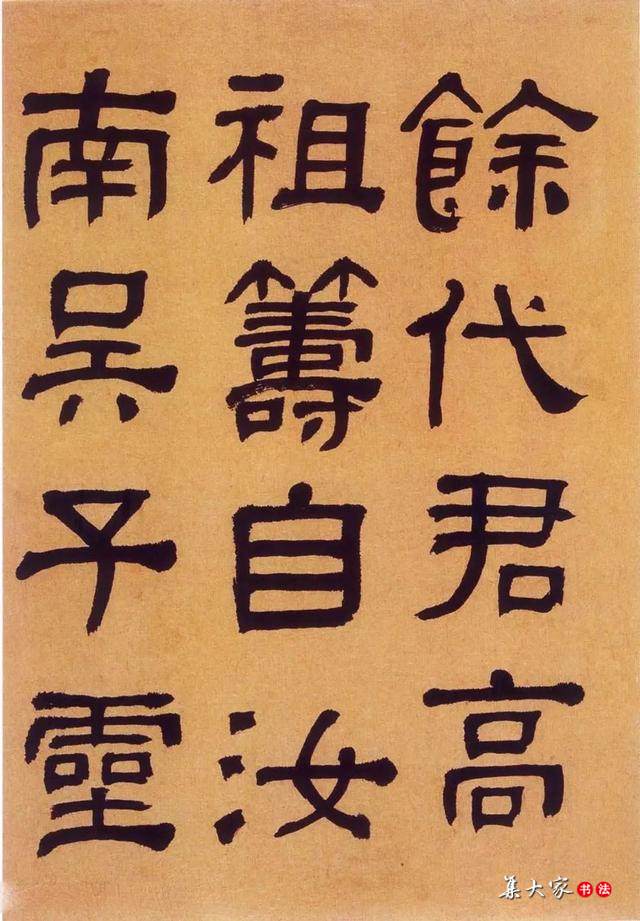 餘代君高
祖籌自汝
南吳子靈
集大家书法